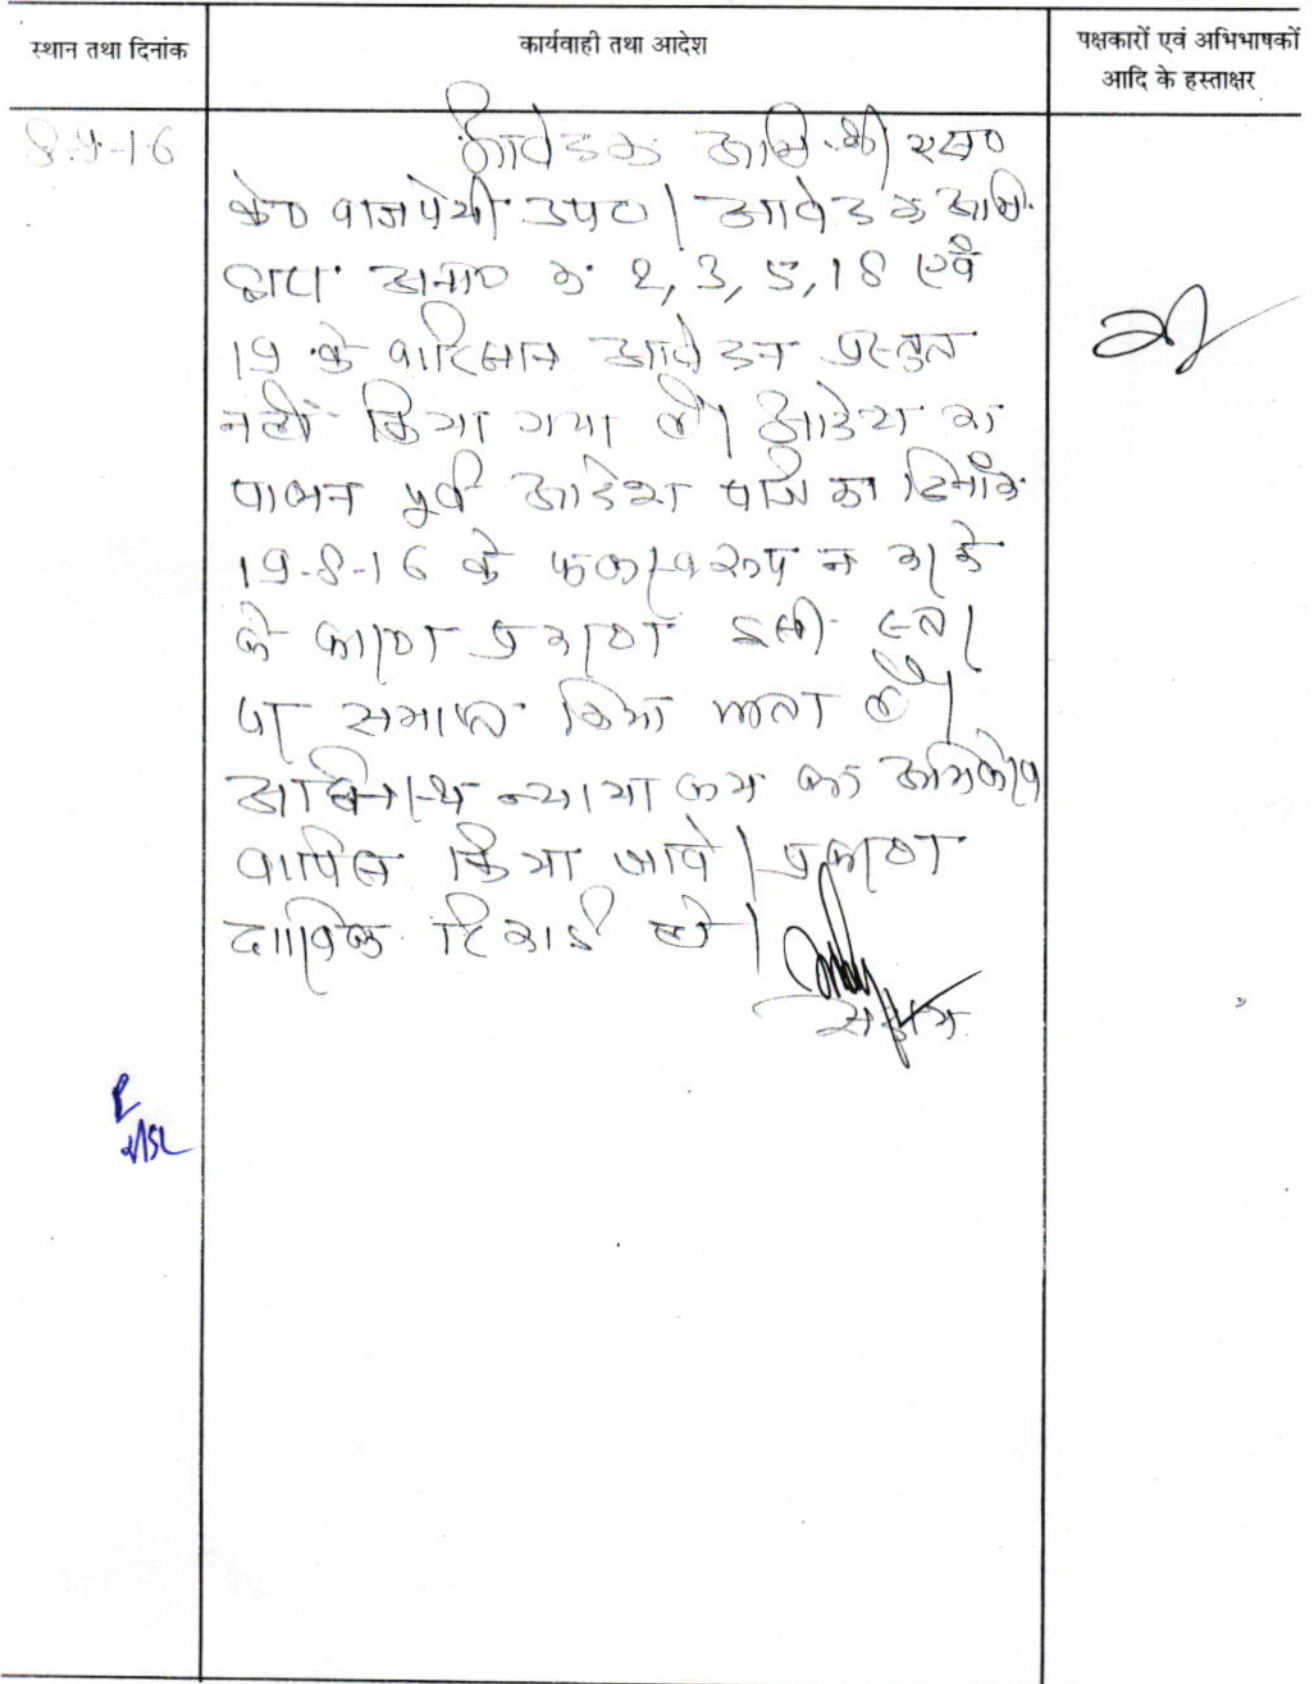 स्थान तथा दिनांक
कार्यवाही तथा आदेश
पक्षकारों एवं अभिभाषकों
आदि के हस्ताक्षर
आवेदक अभि. श्री एस०
के० वाजपेयी उप० | आवेदक अभि.
द्वारा अना० क्र. 2, 3, 5, 18 एवं
19 के वारिसान आवेदन प्रस्तुत
नहीं किया गया है| आदेश का
पालन पूर्व आदेश पत्रिका दिनांक
19-8-16 के फलस्वरूप न करने
के कारण प्रकरण इसी स्तर
पर समाप्त किया जाता है|
अधिनस्थ न्यायालय का अभिलेख
वापिस किया जावे | प्रकरण
दाखिल रिकार्ड हो |
सदस्य